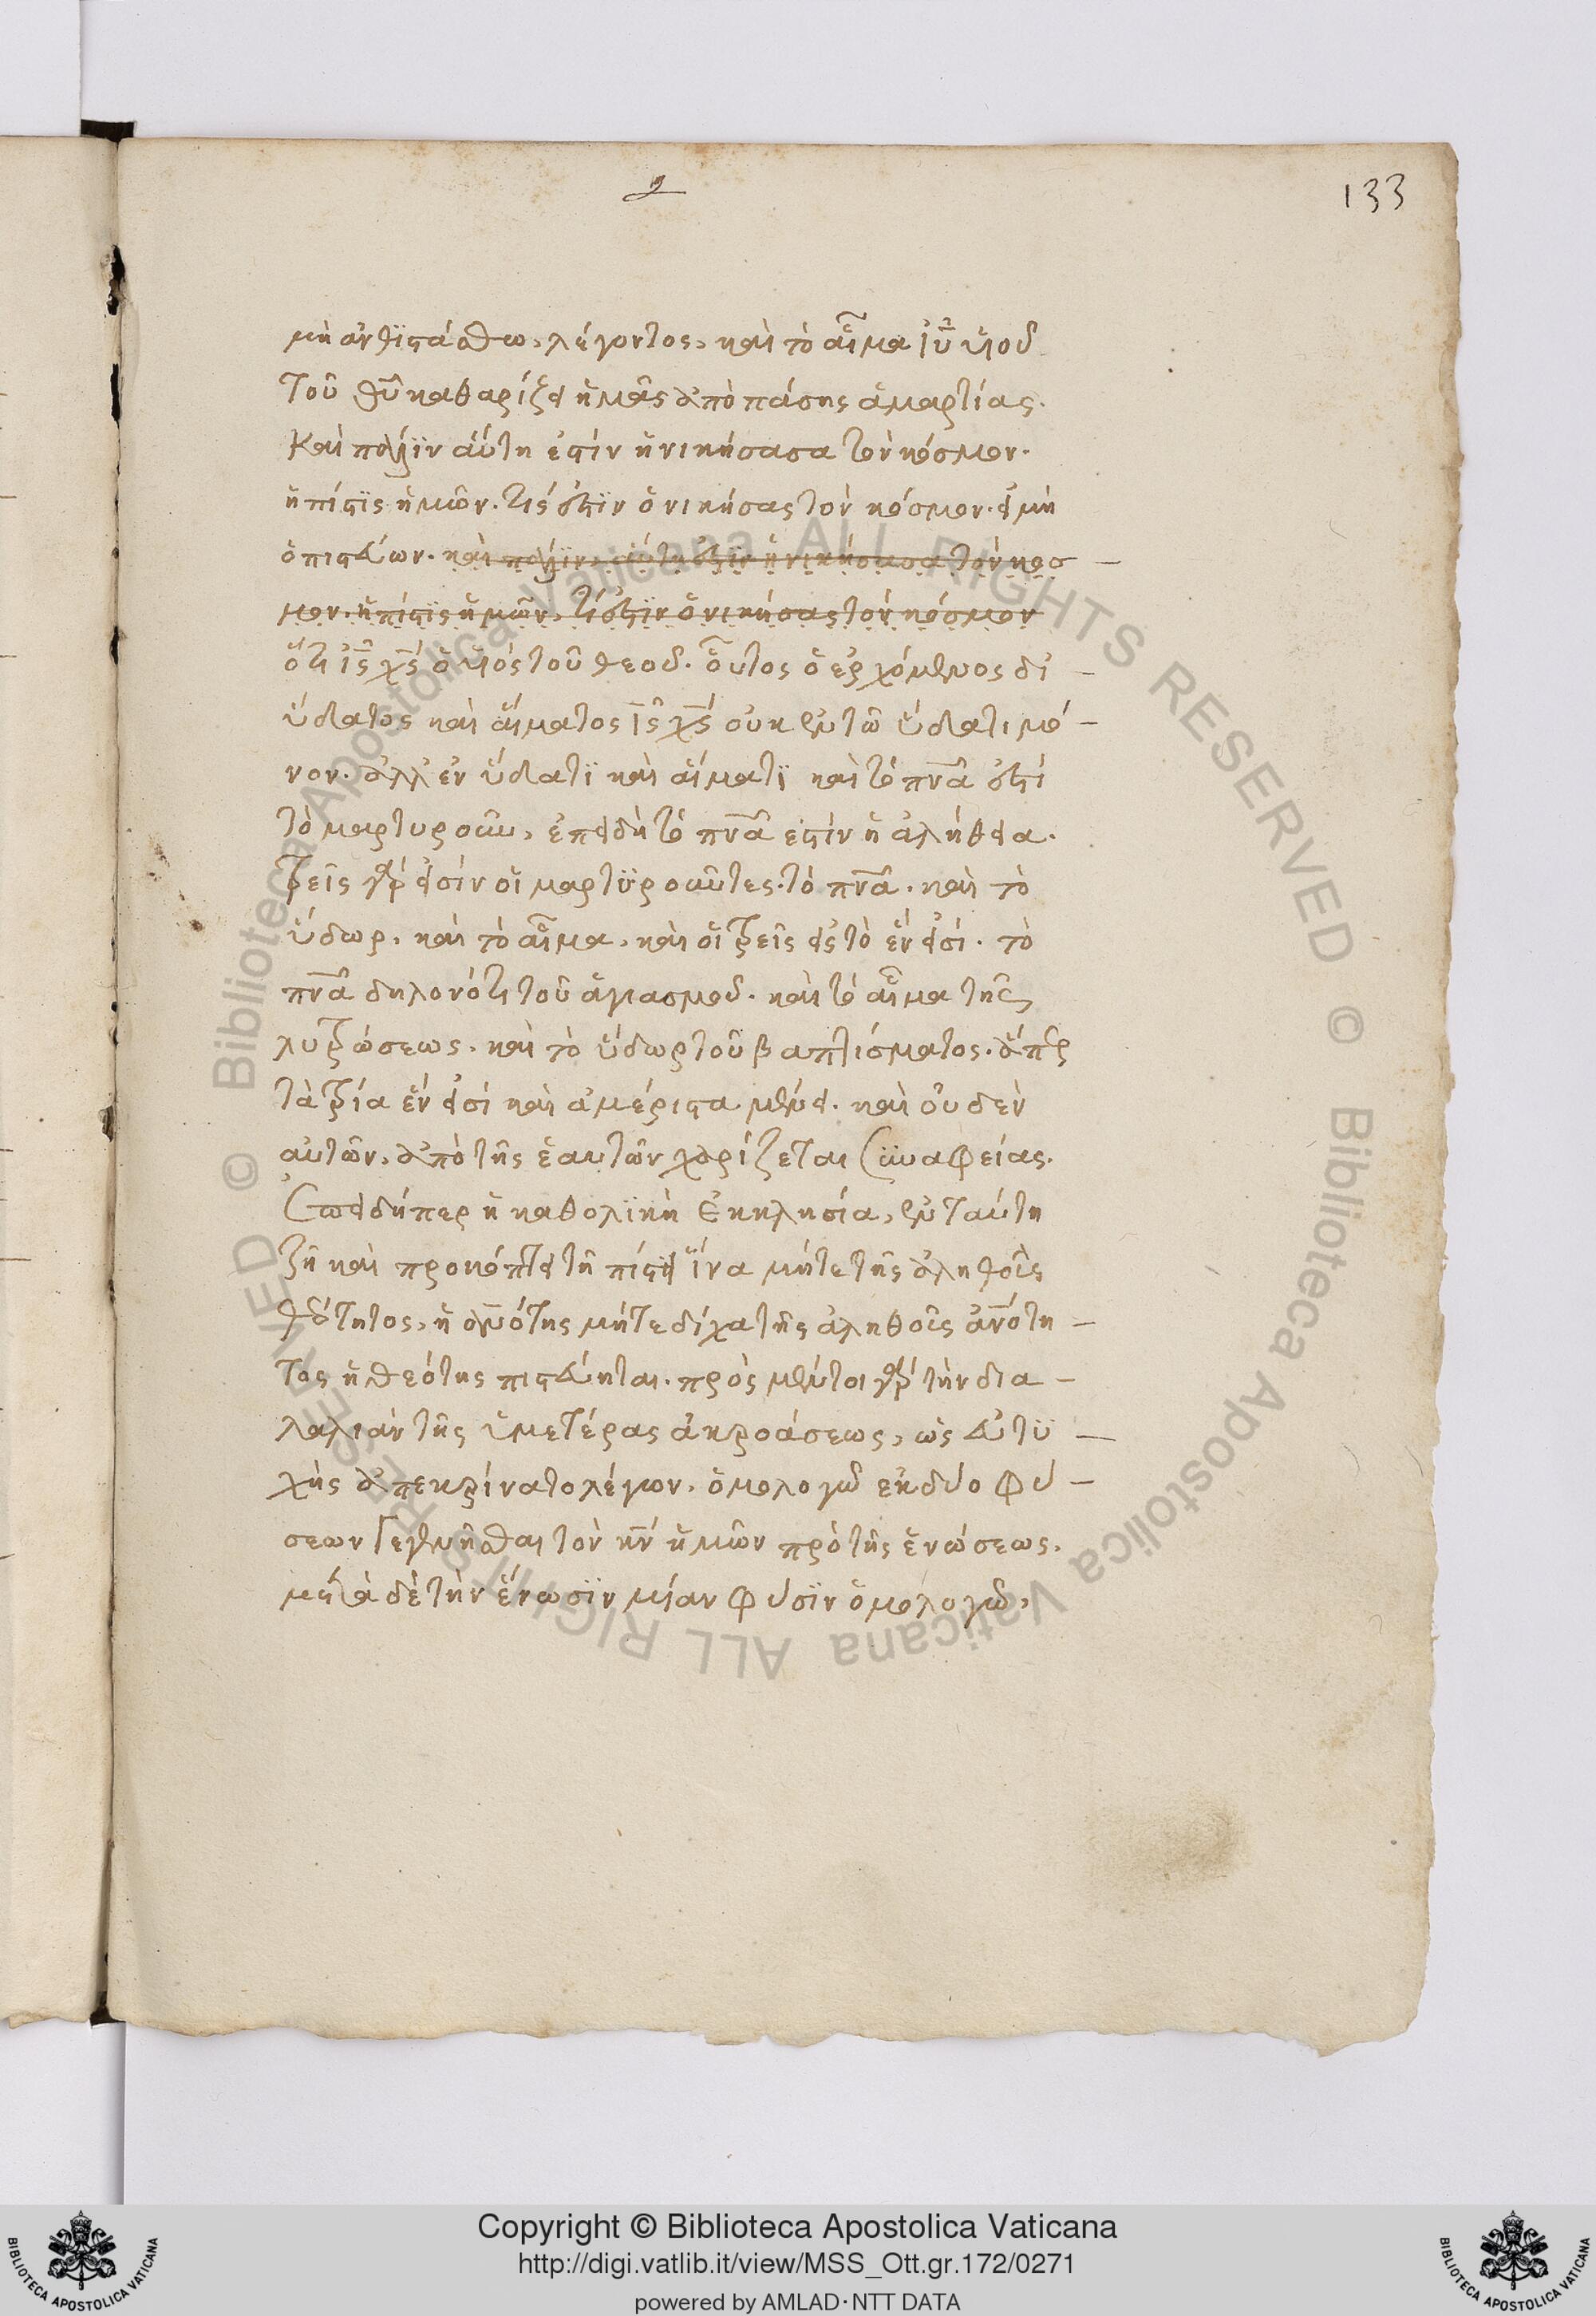 133
μὴ ἀνθϊστάσθω, λέγοντος, καὶ τὸ αἷμα ἰῦ υἱοῦ
τοῦ θῦ καθαρίζει ἡμᾶς ἀπὸ πάσης ἁμαρτίας.
Καὶ πάλϊν αὕτη ἐστίν ἡ νικήσασα τὸν κόσμον.
ἡ πίστϊς ἡμῶν. τίς ἐστϊν ὁ νικήσας τὸν κόσμον. εἰ μὴ
ὁ πιστεύων. καὶ πάλϊν, αὕτη ἐστϊν ἡ νικήσασα τὸν κοσ
μον. ἡ πίστϊς ἡμῶν, τίς ἐστϊν ὁ νικήσας τὸν κόσμον
ὅτι ἰς χς ὁ υἱός τοῦ θεοῦ. οὗτος ὁ ἐρχόμενος δι
ὕδατος καὶ αἵματος ἰς χς οὐκ ἐν τῶ ὕδατι μό
νον. ἀλλ ἐν ὕδατϊ καὶ αἵματϊ καὶ τό πνᾶ ἐστί
τὸ μαρτυροῦν, ἐπειδὴ τό πνᾶ ἐστίν ἡ ἀλήθεια.
τρεῖς γάρ εἰσίν οἱ μαρτϋροῦντες. τό πνᾶ. καὶ τὸ
ὕδωρ. καὶ τὸ αἷμα, καὶ οἱ τρεῖς εἰς τὸ ἕν εἰσί. τὸ
πνᾶ δηλονότι τοῦ ἁγιασμοῦ. καὶ τό αἷμα τῆς
λυτρώσεως. καὶ τὸ ὕδωρ τοῦ βαπτίσματος. ἅπερ
τὰ τρία ἕν εἰσί καὶ ἀμέριστα μένει. καὶ οὐδὲν
αὐτῶν, ἀπὸ τῆς ἑαυτῶν χωρίζεται συναφείας.
ἐπειδήπερ ἡ καθολϊκὴ ἐκκλησία, ἐν ταύτη
ζῆ καὶ προκόπτει τῆ πίστει ἵνα μήτε τῆς ἀληθοῦς
θεότητος, ἡ ἀνότης μήτε δίχα τῆς ἀληθοῦς ἀνότη
τος ἡ θεότης πιστεύηται. πρὸς μέντοι γάρ τὴν δια
λαλιὰν τῆς ὑμετέρας ἀκροάσεως, ὡς εὐτϋ
χὴς ἀπεκρίνατο λέγων. ὁμολογῶ ἐκ δύο φύ
σεων γεγενῆσθαι τὸν κν ἡμῶν πρὸ τῆς ἑνώσεως.
μετὰ δὲ τὴν ἕνωσϊν μίαν φύσϊν ὁμολογῶ,
Copyright © Biblioteca Apostolica Vaticana
http://digi.vatlib.it/view/MSS_Ott.gr.172/0271
powered by AMLAD·NTT DATA